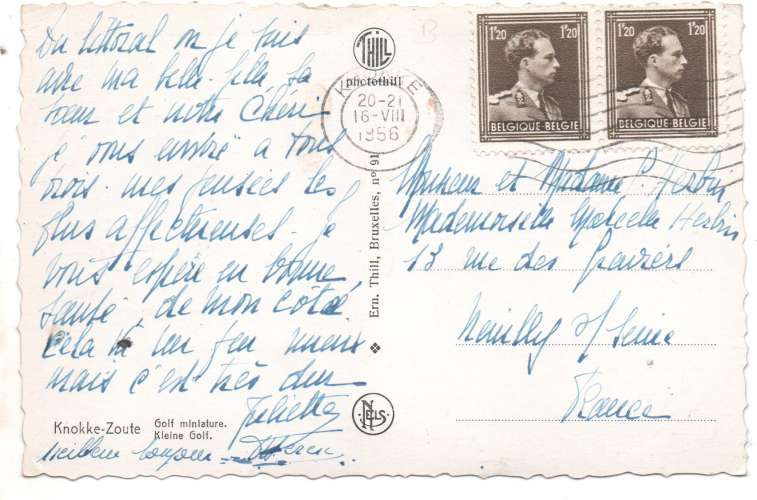 Du littoral où je suis
avec ma belle-fille sa
sœur et notre Chéri
je vous envoie à tous
trois mes pensées les
plus affectueuses. je
vous espère en bonne
santé, de mon côté
cela va un peu mieux
mais c'est très dur
Juliette
Knokke-Zoute
Golf miniature.
Kleine Golf.
THILL
photothill
20-21
16-VIII
1956
Ern. Thill, Bruxelles, n° 91
NELS
1F20 1F20
BELGIQUE·BELGIE
1F20 1F20
BELGIQUE·BELGIE
Monsieur et Madame P. Herbin
Mademoiselle Marcelle Herbin
13 rue des
Neuilly s/ Seine
France